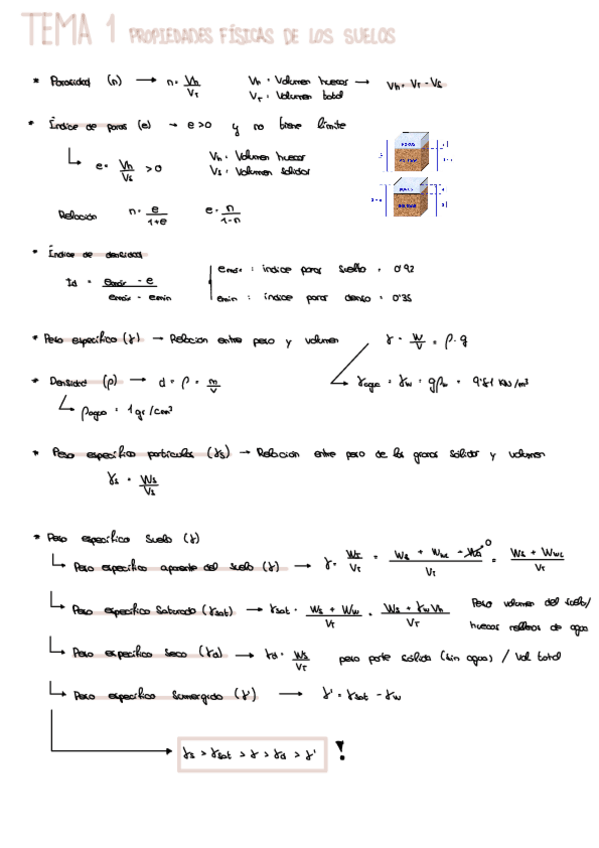 TEMA 1 PROPIEDADES FÍSICAS DE LOS SUELOS
* Porosidad (n) → n = Vh / VT   Vh = Volumen huecos → Vh = VT - Vs
VT = Volumen total
* Índice de poros (e) → e > 0 y no tiene límite
e = Vh / Vs > 0   Vh = Volumen huecos
Vs = Volumen sólidos
Relación   n = e / 1+e   e = n / 1-n
* Índice de densidad
Id = emáx - e / emáx - emin   emáx : índice poros suelto = 0'92
emin : índice poros denso = 0'35
* Peso específico (γ) → Relacion entre peso y volumen   γ = W / V = ρ · g
* Densidad (ρ) → d = ρ = m / V   γagua = γw = gρw = 9'81 KN/m³
ρagua = 1 gr/cm³
* Peso específico partículas (γs) → Relacion entre peso de los granos sólidos y volumen
γs = Ws / Vs
* Peso específico suelo (γ)
Peso específico aparente del suelo (γ) → γ = WT / VT =
Peso específico Saturado (γsat) → γsat = Ws + Ww / VT = Ws + γw Vh / VT   Peso volumen del suelo/
huecos rellenos de agua
Peso específico Seco (γd) → γd = Ws / VT   peso parte sólida (sin agua) / Vol total
Peso específico Sumergido (γ') → γ' = γsat - γw
γs > γsat > γ > γd > γ' !